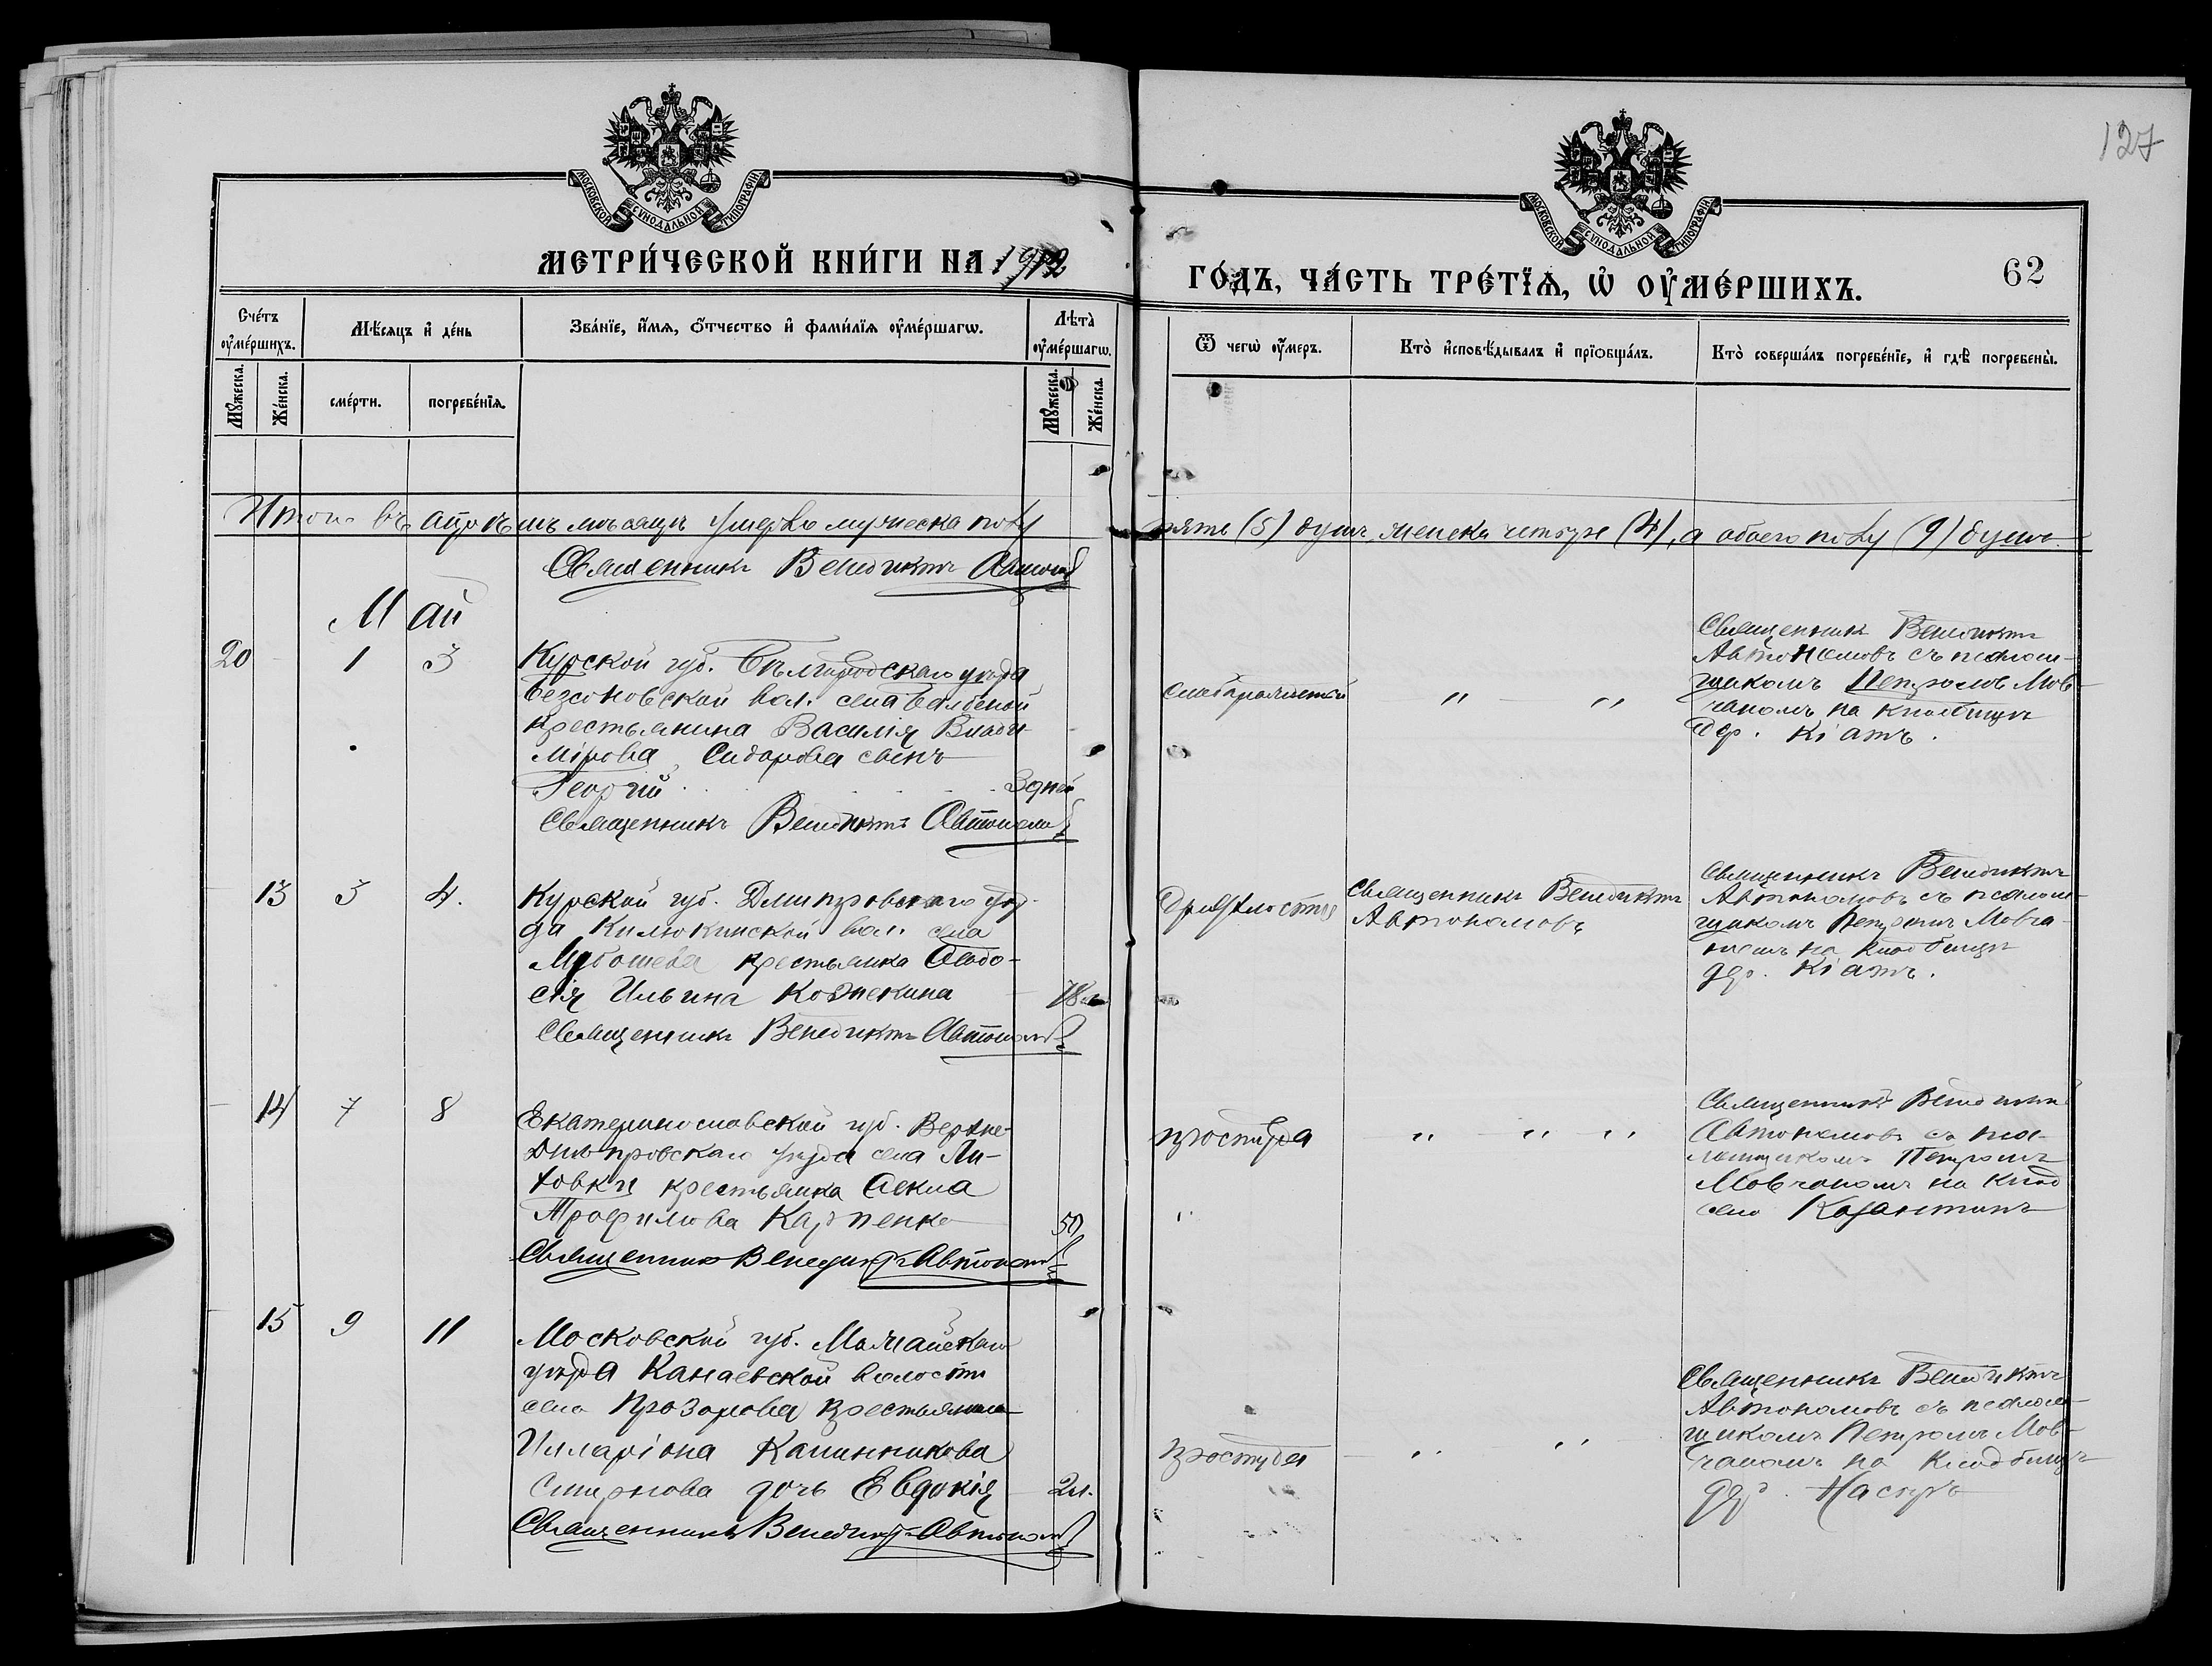 127
МОСКОВСКОЙ СѴНОДАЛЬНОЙ ТИПОГРАФІИ
МОСКОВСКОЙ СѴНОДАЛЬНОЙ ТИПОГРАФІИ
МЕТРИ́ЧЕСКОЙ КНИ́ГИ НА 1912
ГО́ДЪ, ЧА́СТЬ ТРЕ́ТЇѦ, Ѡ҆ ОУ҆МЕ́РШИХЪ.
62
Сче́тъ оу҆ме́ршихъ.
Мѣ́сѧцъ и҆ де́нь
Зва́нїе, и҆́мѧ, ѻ҆́тчество и҆ фами́лїѧ оу҆ме́ршагѡ.
Лѣ́та оу҆ме́ршагѡ.
Ѿ чегѡ̀ оу҆́меръ.
Кто̀ и҆сповѣ́дывалъ и҆ прїѡбща́лъ.
Кто̀ соверша́лъ погребе́нїе, и҆ гдѣ̀ погребены̀.
Мꙋ́жеска.
Же́нска.
сме́рти.
погребе́нїѧ.
Мꙋ́жеска.
Же́нска.
Итого въ апрѣлѣ мѣсяцѣ умерло мужеска полу
пять (5) душъ, женска четыре (4), а обоего полу (9) душъ.
Священникъ Венедиктъ Автономовъ
Май
20 1 3
Курской губ. Бѣлгородскаго уѣзда
Безсоновской вол. села
крестьянина Василія Влади-
мірова Сидорова сынъ
Георгій 3 дней
Священникъ Венедиктъ Автономовъ
слаборожденный
" "
Священник Венедиктъ
Автономовъ съ псалом-
щикомъ Петромъ Мов-
чаномъ на кладбищѣ
дер. Кіятъ.
13 3 4.
Курской губ. Дмитровскаго уѣз-
да вол. села
крестьянка Ѳеодо-
сія Ильина 78 л.
Священникъ Венедиктъ Автономовъ
Дряхлости
Священникъ Венедиктъ
Автономовъ
Священникъ Венедиктъ
Автономовъ съ псалом-
щикомъ Петромъ Мовча-
номъ на кладбищѣ
дер. Кіятъ.
14 7 8
Екатеринославской губ. Верхне-
Днѣпровскаго уѣзда села
крестьянка Ѳекла
Трофимова Карпенко 50
Священник Венедиктъ Автономовъ
простуда
" " "
"
Священникъ Венедиктъ
Автономовъ съ пса-
ломщикомъ Петромъ
Мовчаномъ на клад
села
15 9 11
Московской губ. Можайскаго
уѣзда Канаевской волости
села Прозорова крестьянина
Илларіона Калинникова
Смирнова дочь Евдокія 2 л.
Священникъ Венедиктъ Автономовъ
простуда
" "
Священникъ Венедиктъ
Автономовъ съ псалом-
щикомъ Петромъ Мов-
чаномъ на кладбищѣ
дер.